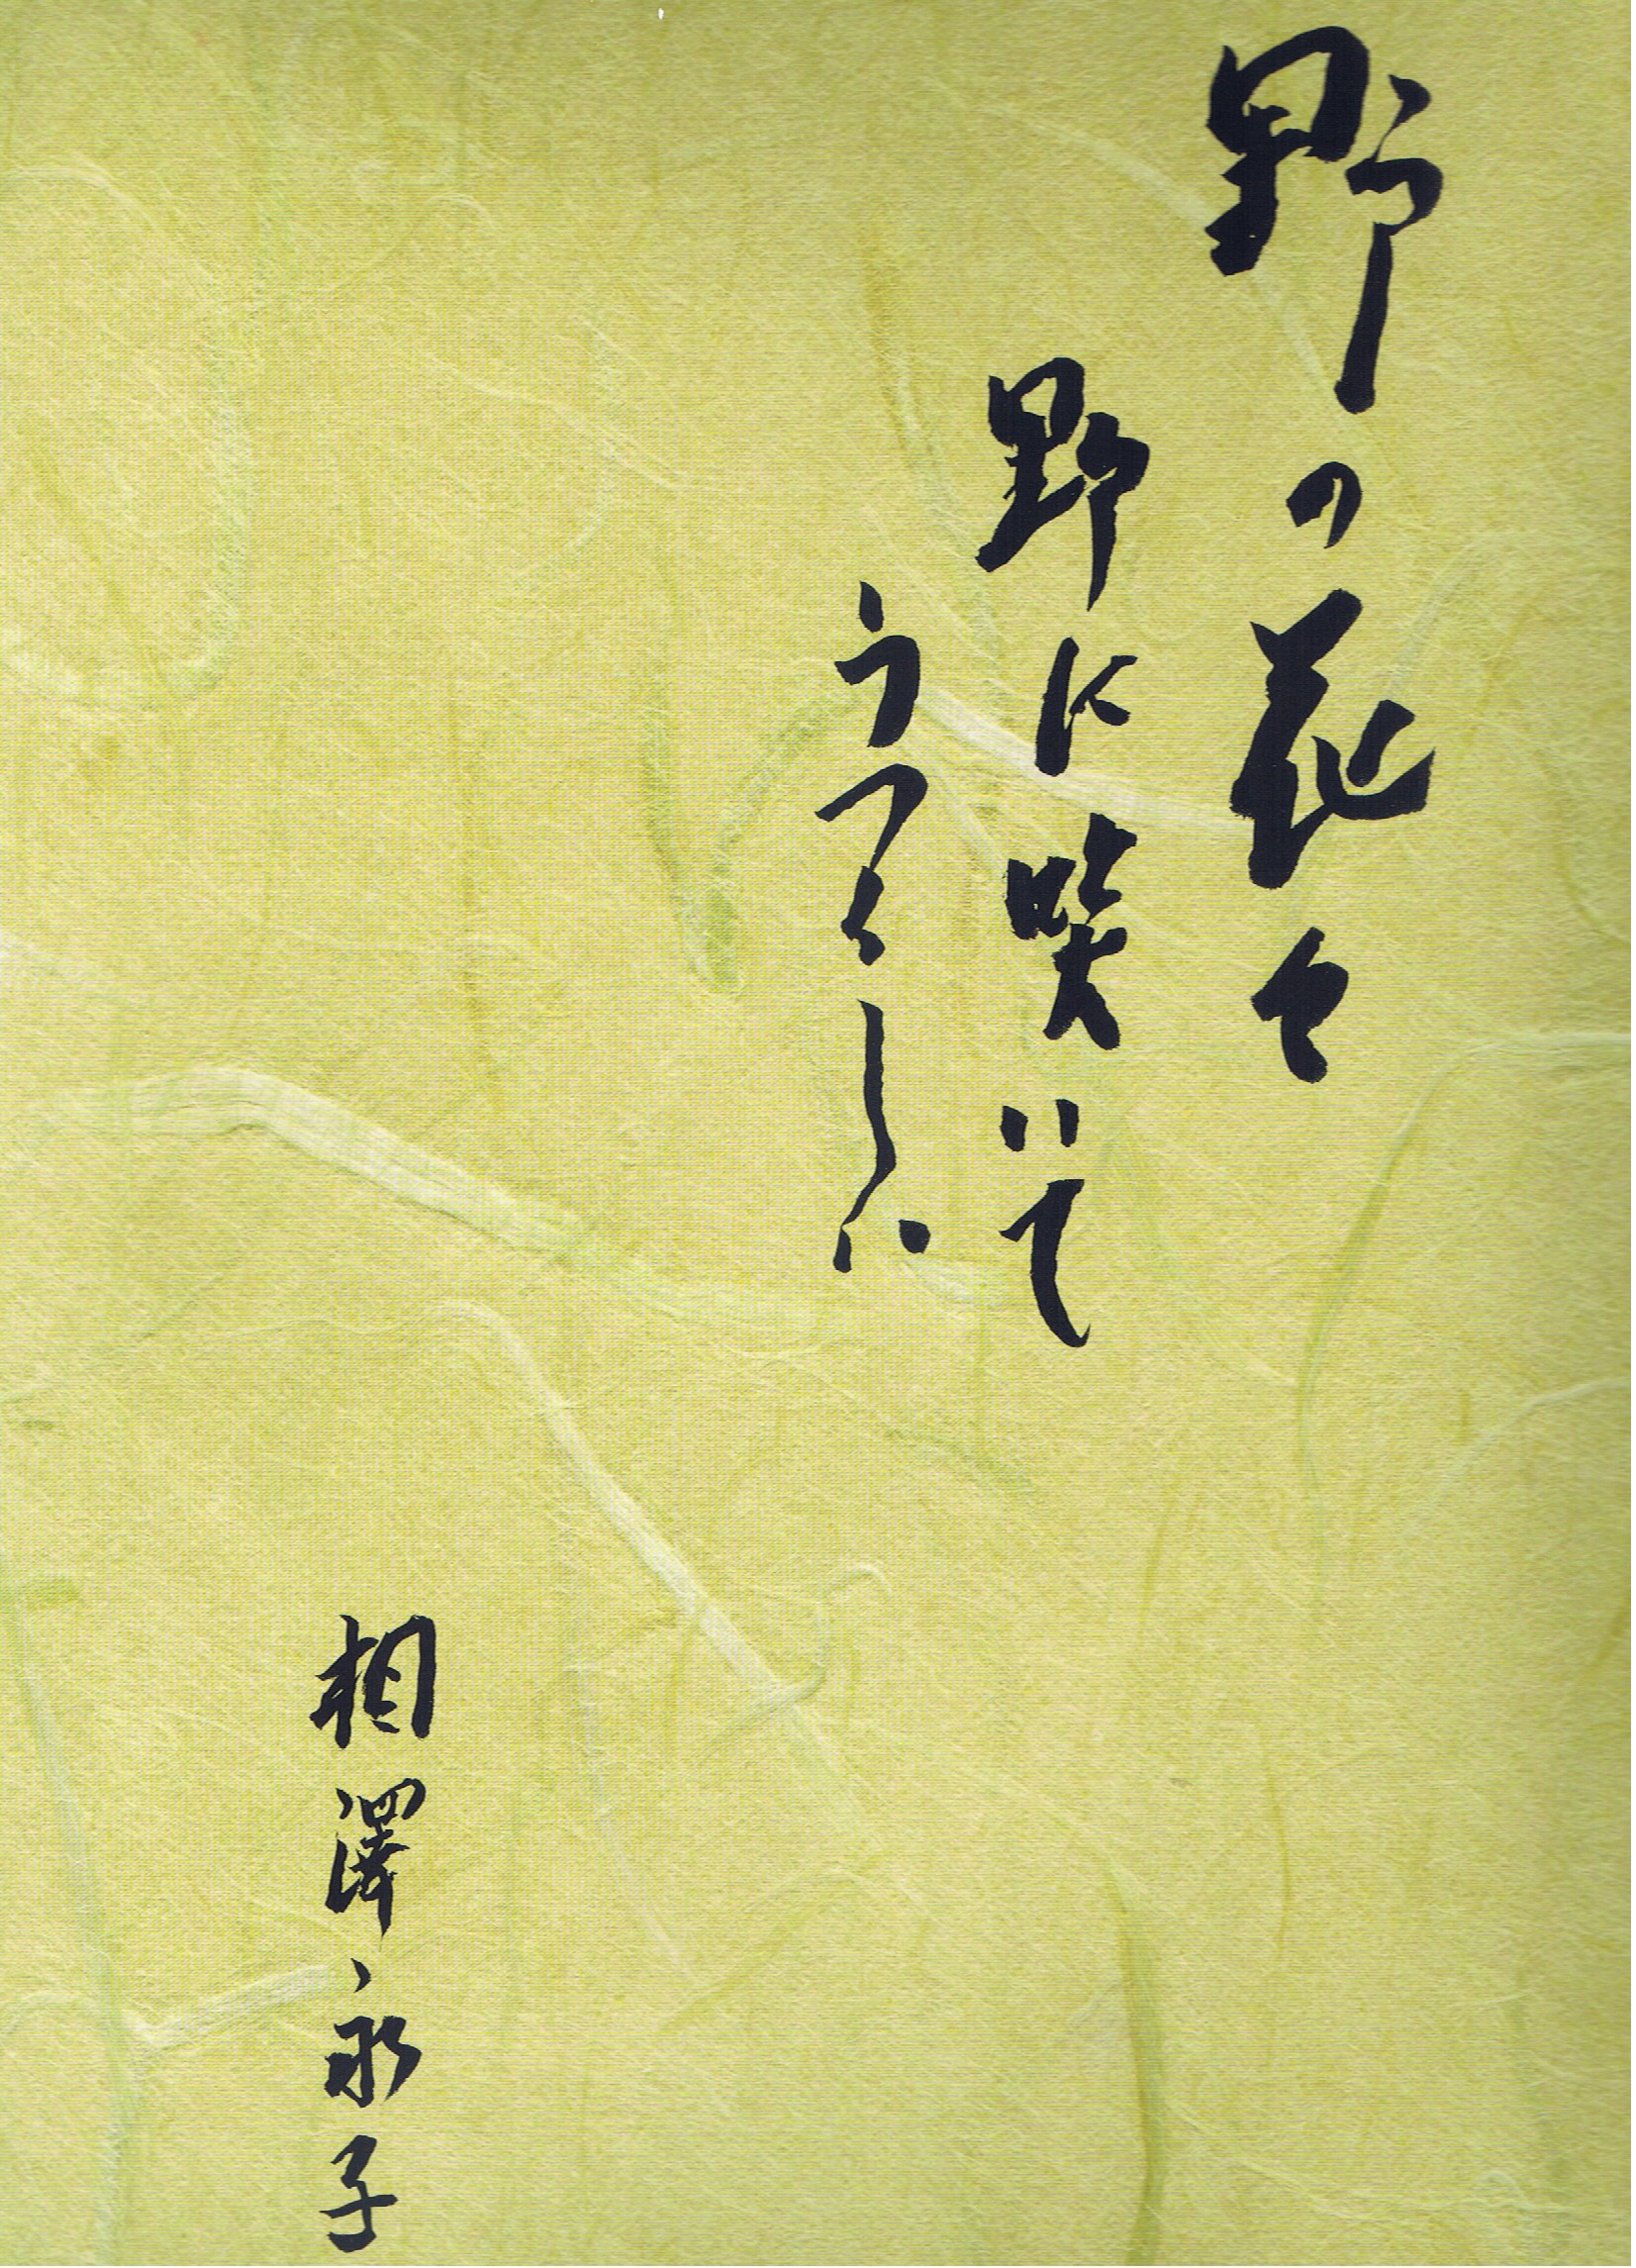 野の花々
野に咲いて
うつくしい
相澤永子